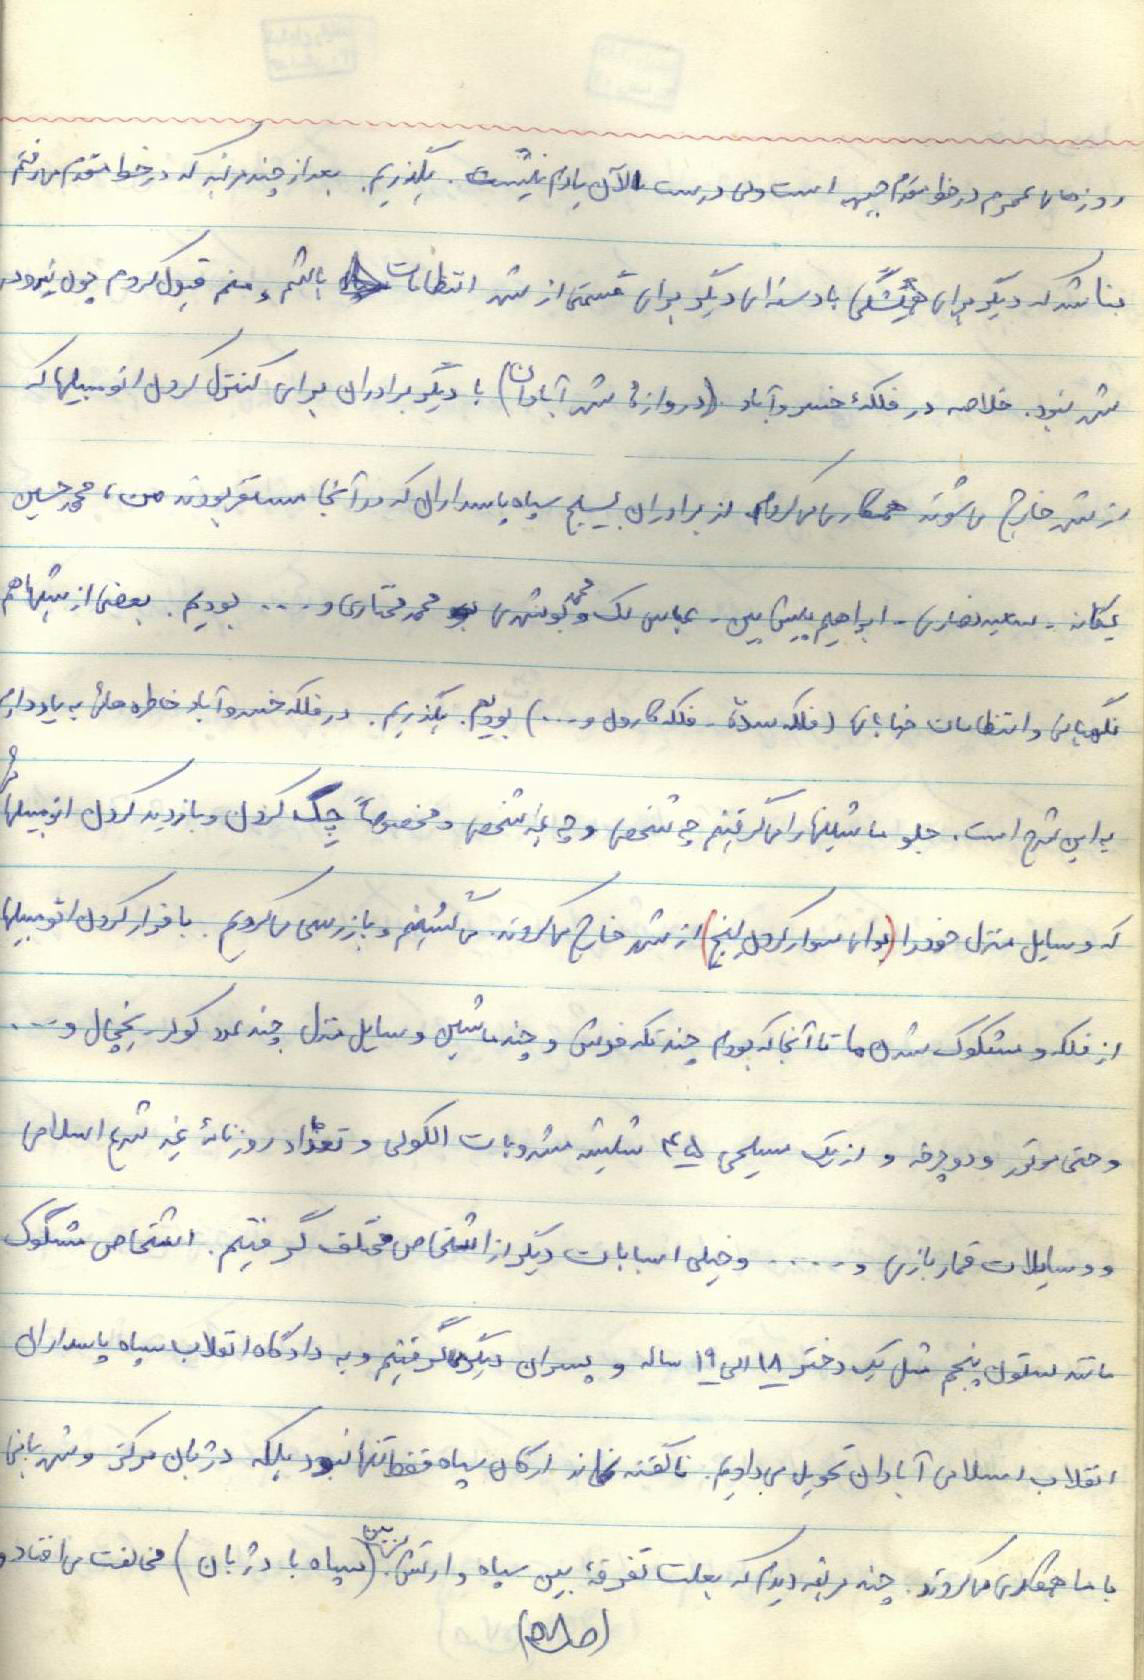 روزهای محرم در خط مقدم جبهه است ولی درست الآن یادم نیست. بگذریم. بعد از چند مرتبه که در خط مقدم می‌رفتم
بنا شد که دیگر برای همیشگی با دسته‌ای دیگر برای قسمتی از شهر انتظامات باشم و منم قبول کردم چون نیرو در
شهر نبود. خلاصه در فلکهٔ خسروآباد (دروازهٔ شهر آبادان) با دیگر برادران برای کنترل کردن اتومبیلها که
از شهر خارج می‌شوند همکاری می‌کردم از برادران بسیج سپاه پاسداران که در آنجا مستقر بودند من، محمدحسین
یگانه - سعید نصاری - ابراهیم پیش‌بین - عباس لک و محمد بوشهری محمد مختاری و .... بودیم. بعضی از شبها هم
نگهبانی و انتظامات خیابانی (فلکه سدّه - فلکه کارون و ...) بودیم. بگذریم. در فلکه خسروآباد خاطره‌هائی به یاد دارم
به این شرح است. جلو ماشینها را می‌گرفتیم چه شخصی و چه غیر شخصی و مخصوصاً چِک کردن و بازدید کردن اتومبیلهائی
که وسایل منزل خود را (برای سوار کردن لنج) از شهر خارج می‌کردند. می‌گشتیم و بازرسی می‌کردیم. با فرار کردن اتومبیلها
از فلکه و مشکوک شدن ما تا آنجا که بودم چند تکه فرش و چند ماشین وسایل منزل چند عدد کولر - یخچال و ....
و حتی موتور و دوچرخه و از یک مسیحی ۴۵ شیشه مشروبات الکولی و تعداد روزنامهٔ غیر شرع اسلامی
و وسایلات قماربازی و ..... و خیلی اسبابات دیگر از اشخاص مختلف گرفتیم. اشخاص مشکوک
مانند ستون پنجم مثل یک دختر ۱۸ الی ۱۹ ساله و پسران دیگر گرفتیم و به دادگاه انقلاب سپاه پاسداران
انقلاب اسلامی آبادان تحویل می‌دادیم. ناگفته نماند ارگان سپاه فقط تنها نبود بلکه دژبان مرکز و شهربانی
با ما همکاری می‌کردند. چند مرتبه دیدم که بعلت تفرقهٔ بین سپاه و ارتش، بین (سپاه با دژبان) مخالفت می‌افتاد و